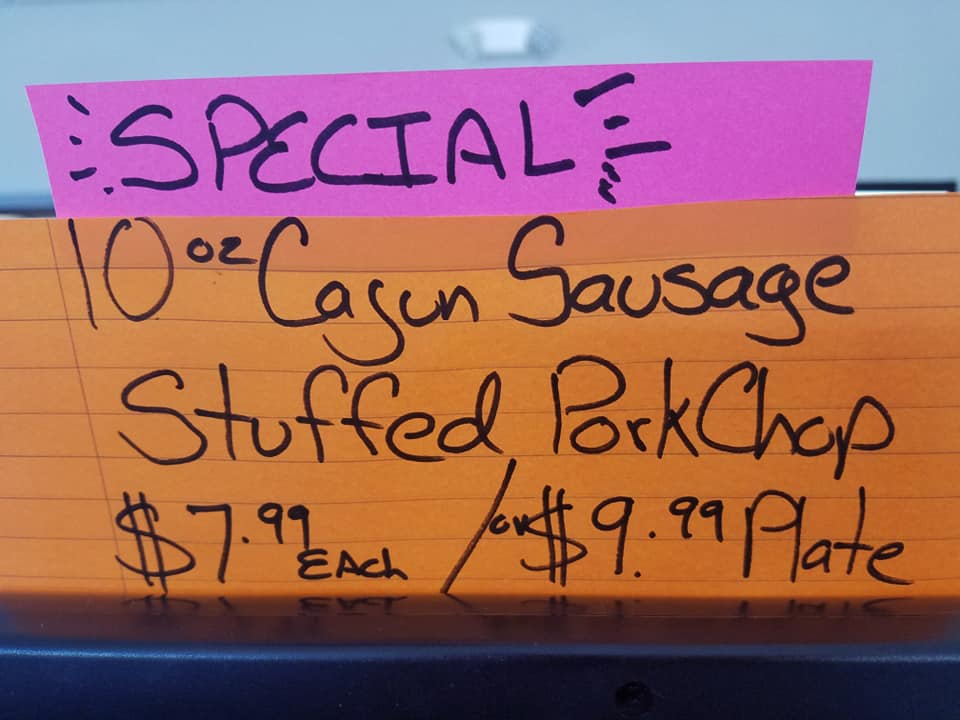 SPECIAL
10 oz Cajun Sausage
Stuffed Pork Chop
$7.99 EACh / or $9.99 Plate